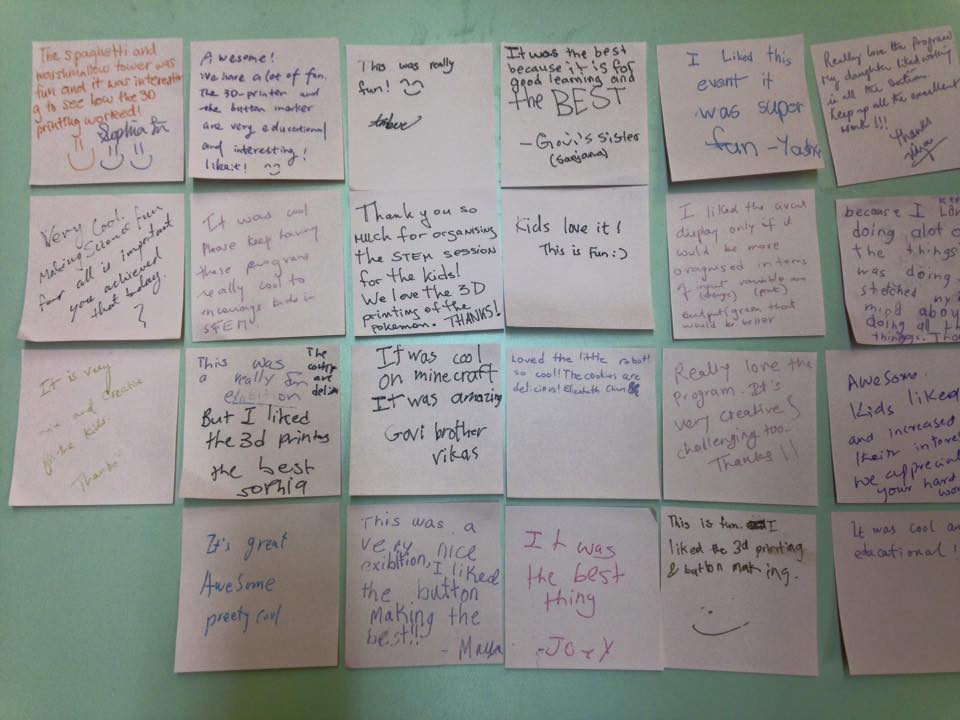 The spaghetti and
marshmallow tower was
fun and it was interestin
g to see how the 3D
printing worked!
Sophia
Awesome!
We have a lot of fun.
The 3D-printer and
the button marker
are very educational
and interesting!
like it!
This was really
fun!
It was the best
because it is for
good learning and
the BEST
- Govi's sister
(Sanjana)
I liked this
event it
was super
fun -
Really love the program
My daughter liked working
in all the section.
Keep up all the excellent
work!!!
Thanks
Very Cool.
Making Science fun
for all is important
you achieved
that today.
It was cool
Please keep having
these programs
really cool to
encourage kids in
STEM.
Thank you so
much for organising
the STEM session
for the kids!
We love the 3D
printing of the
pokemon. THANKS!
Kids love it!
This is Fun :)
I liked the
display only if it
would be more
in terms
of input variable
output that
would be better
because I
doing alot o
the things
was doing.
stetched my
mind abou
doing al th
things.
It is very
and creative
for the kids.
Thanks
This was
a really fun
exibition
The
are
But I liked
the 3d printing
the best
sophia
It was cool
on minecraft
It was amazing
Govi brother
vikas
Loved the little robot!
so cool! The cookies are
delicious! Elizabeth
Really love the
program. It's
very creative &
challenging too.
Thanks!!
Awesome.
Kids liked
and increased
their intere
we apprecia
your hard
wor
It's great
Awesome
preety cool
This was a
very nice
exibition, I liked
the button
making the
best!!
- Maya
It was
the best
thing
-JOEY
This is fun. I
liked the 3d printing
& button making.
It was cool an
educational!